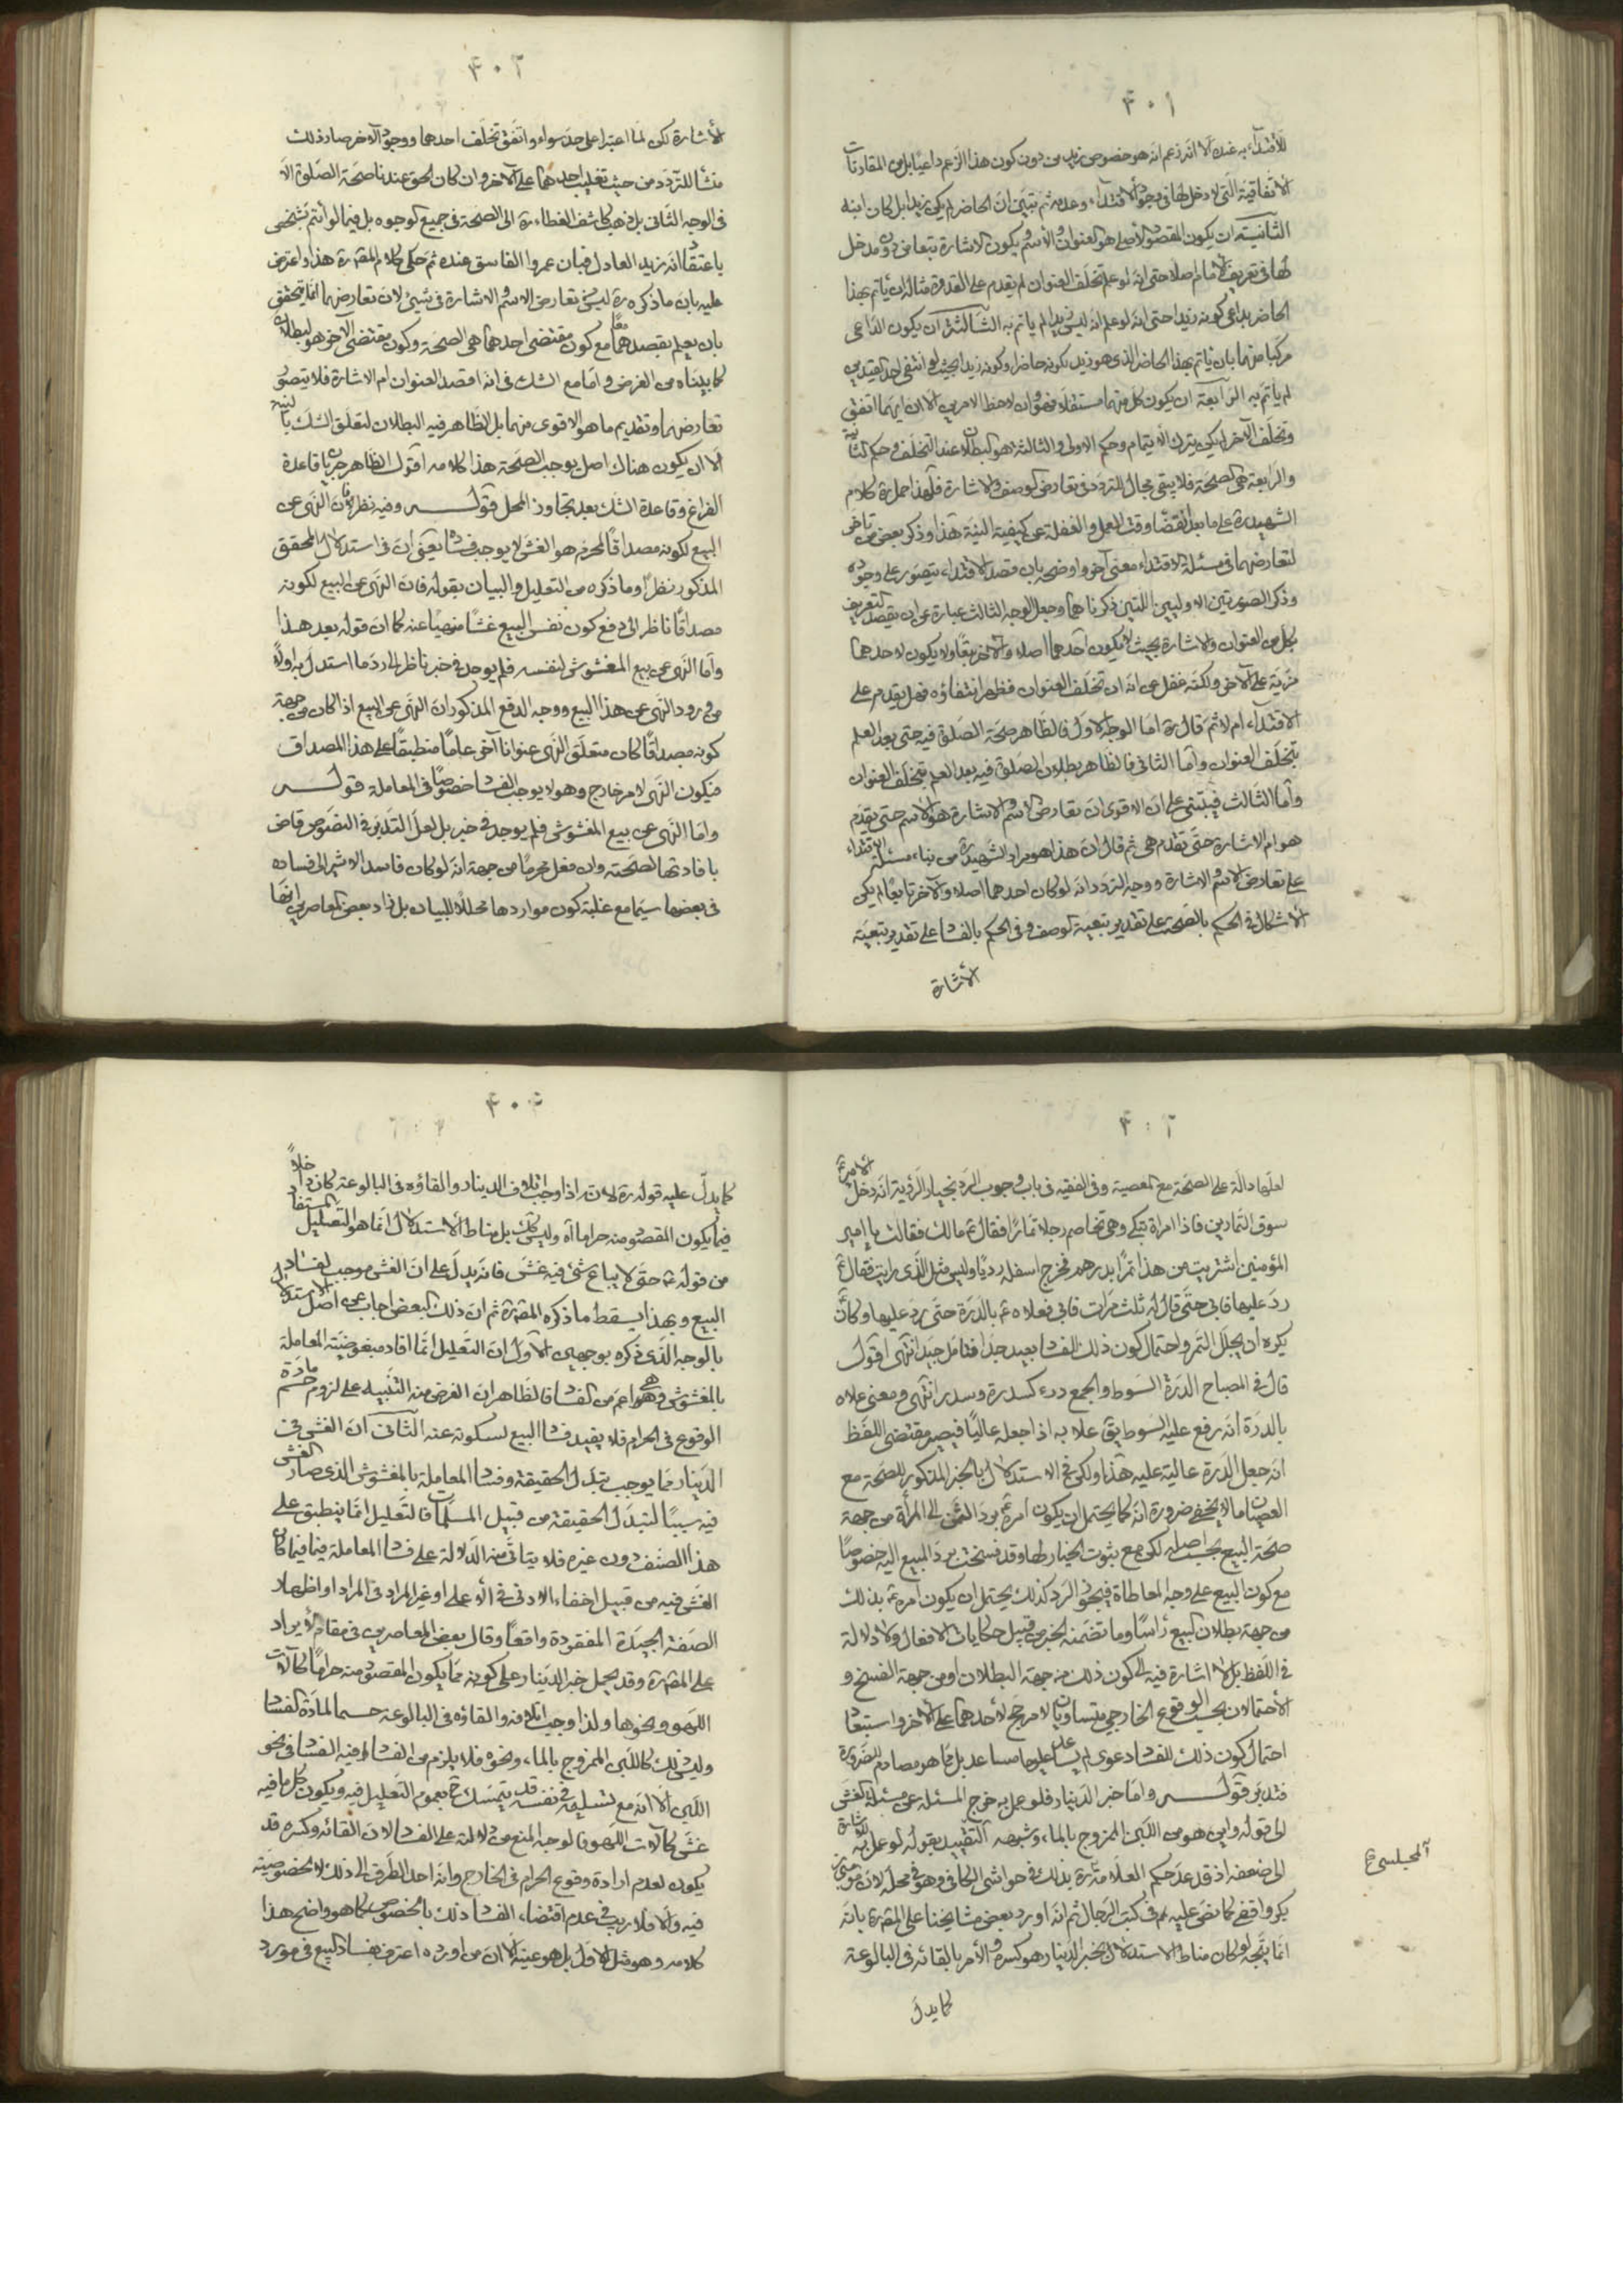 ۴۰۱
للأقتداء به عنده الا انه زعم انه هو خصوص زيد من دون كون هذا الزعم داعيا بل من المقارنات
الأتفاقية التى لا دخل لها فى وجود الأقتداء وعدمه ثم تبين ان الحاضر لم يكن زيدا بل كان ابنه
الثانية ان يكون المقصود الاصلى هو العنوان والأسم ويكون الاشارة بتعا من دون مدخل
لها فى تعريف الامام اصلا حتى انه لو علم تخلف العنوان لم يقدم على القدوة مثاله ان يأتم بهذا
الحاضر بداعى كونه زيدا حتى انه لو علم انه ليس زيدا لم يأتم به الثالثة ان يكون الداعى
مركبا منهما بان يأتم بهذا الحاضر الذى هو زيد بكونه حاضرا وكونه زيدا بحيث لو انتفى احد القيدين
لم يأتم به الرابعة ان يكون كل منهما مستقلا فهو وان لاحظ الامرين الا ان ايهما اتفق
وتخلف الآخر لم يكن يترك الايتمام وحكم الاولى والثالثة هو البطلان عند التخلف وحكم الثانية
والرابعة هى الصحة فلا يبقى مجال للتردد فى تعارض الوصف والاشارة فلهذا حمل ره كلام
الشهيد ره على ما بعد انقضاء وقت العمل والغفلة عن كيفية النية هذا وذكر بعض من تاخر
لتعارضهما فى مسئلة الاقتداء معنى آخر واوضحه بان قصد الاقتداء يتصور على وجوه
وذكر الصورتين الاوليين اللتين ذكرناهما وجعل الوجه الثالث عبارة عن ان يقصد التعريف
بكل من العنوان والاشارة بحيث لا يكون احدهما اصلا والآخر تبعا ولا يكون لاحدهما
مزية على الآخر ولكنه غفل عن انه ان تخلف العنوان فظهر انتفاؤه فهل يقدم على
الاقتداء ام لا ثم قال ره اما الوجه الاول فالظاهر صحة الصلوة فيه حتى بعد العلم
بتخلف العنوان واما الثانى فالظاهر بطلان الصلوة فيه بعد العلم بتخلف العنوان
واما الثالث فيبتنى على ان الاقوى ان تعارض الاسم والاشارة هو الاسم حتى يقدم
هو ام الاشارة حتى تقدم هى ثم قال ان هذا هو مراد الشهيد ره من بناء مسئلة الاقتداء
على تعارض الاسم والاشارة ووجه التردد انه لو كان احدهما اصلا والآخر تابعا لم يكن
الأشكال فى الحكم بالصحة على تقدير تبعية الوصف وفى الحكم بالفساد على تقدير تبعية
الأشارة
۴۰۲
الأشارة لكن لما اعتبرا على حد سواء واتفق تخلف احدهما ووجود الآخر صار ذلك
منشأ للتردد من حيث تغليب احدهما على الآخر وان كان الحق عندنا صحة الصلوة الا
فى الوجه الثانى بل ذهب كاشف الغطاء ره الى الصحة فى جميع الوجوه بل فيما لو أتم بشخص
باعتقاد انه زيد العادل فبان عمروا الفاسق عنده ثم حكى كلام المقدّس ره هذا واعترض
عليه بان ما ذكره ره ليس من تعارض الاسم والاشارة فى شئ لان تعارضهما انما يتحقق
بان يعلم بقصدهما معا مع كون مقتضى احدهما هى الصحة وكون مقتضى الآخر هو البطلان
كما بيناه من الفرض واما مع الشك فى انه اقصد العنوان ام الاشارة فلا يتصور
تعارضهما وتقديم ما هو الاقوى منهما بل الظاهر فيه البطلان لتعلق الشك بالنية
الا ان يكون هناك اصل يوجب الصحة هذا كلامه اقول الظاهر جريان قاعدة
الفراغ وقاعدة الشك بعد تجاوز المحل قوله وفيه نظر فان النهى عن
البيع لكونه مصداقا لمحرم هو الغش لا يوجب فسادا يعنى ان فى استدلال المحقق
المذكور نظرا وما ذكره من التعليل والبيان بقوله فان النهى عن البيع لكونه
مصداقا ناظر الى دفع كون نفس البيع غشا منهيا عنه كما ان قوله بعد هذا
واما النهى عن بيع المغشوش لنفسه فلم يوجد فى خبر ناظر الى رد ما استدل به اولا
من ورود النهى عن هذا البيع ووجه الدفع المذكور ان النهى عن البيع اذا كان من جهة
كونه مصداقا كان متعلق النهى عنوانا آخر عاما منطبقا على هذا المصداق
فيكون النهى لامر خارج وهو لا يوجب الفساد خصوصا فى المعاملة قوله
واما النهى عن بيع المغشوش فلم يوجد فى خبر بل لعل التدبر فى النصوص قاض
بافادتها الصحة وان فعل محرما من جهة انه لو كان فاسدا لاشير الى فساده
فى بعضها سيما مع غلبة كون مواردها محلا للبيان بل زاد بعض المعاصرين انها
۴۰۳
لعلها دالة على الصحة مع المعصية وفى الفقيه فى باب وجوب الرد بخيار الرؤية انه دخل الامير ع
سوق التمارين فاذا امراة تبكى وهى تخاصم رجلا تمارا فقال ع مالك فقالت يا امير
المؤمنين اشتريت من هذا تمرا بدرهم فخرج اسفله رديا وليس مثل الذى رايت فقال ع
رد عليها فابى حتى قال له ثلث مرات فابى فعلاه ع بالدرة حتى رد عليها وكان
يكره ان يجلل التمر واحتمال كون ذلك الفساد بعيد جدا فتامل جيدا انتهى اقول
قال فى المصباح الدرة السوط والجمع درر كسدرة وسدر انتهى ومعنى علاه
بالدرة انه رفع عليه السوط يق علا به اذا جعله عاليا فيصير مقتضى اللفظ
انه جعل الدرة عالية عليه هذا ولكن فى الاستدلال بالخبر المذكور للصحة مع
العصيان ما لا يخفى ضرورة انه كما يحتمل ان يكون امره ع برد الثمن الى المرأة من جهة
صحة البيع بحسب اصله لكن مع ثبوت الخيار لها وقد فسخت برد المبيع اليه خصوصا
مع كون البيع على وجه المعاطاة فيجوز الرد كذلك يحتمل ان يكون امره ع بذلك
من جهة بطلان البيع رأسا وما تضمنه الخبر من قبيل حكايات الافعال ولا دلالة
فى اللفظ بل لا اشارة فيه الى كون ذلك من جهة البطلان او من جهة الفسخ و
الأحتمالان بحسب الوقوع الخارجى متساويان لا مرجح لأحدهما على الآخر واستبعاد
احتمال كون ذلك للفساد دعوى لم يساعد عليها مساعد بل مما هو مصادم للضرورة
فتدبر قوله واما خبر الدينار فلو عمل به خرج المسئلة عن مسئلة الغش
الى قوله واين هو من اللبن الممزوج بالماء وشبهه التقييد بقوله لو عمل به للاشارة
الى ضعفه اذ قد عد حكم العلامة ره بذلك فى حواشى الكافى وهو فى محله لان موسى بن
بكر واقفى كما نص عليه فى كتب الرجال ثم انه اورد بعض مشايخنا على المقدّس ره بانه
انما يتجه لو كان مناط الاستدلال بخبر الدينار هو كسره والأمر بالقائه فى البالوعة
آلمجلسى ع
كما يدل
۴۰۴
كما يدل عليه قوله ره لانه اذا وجب اتلاف الدينار والقاؤه فى البالوعة كان داخلا
فيما يكون المقصود منه حراما اه وليس كك بل مناط الاستدلال انما هو التعليل المستفاد
من قوله ع حتى لا يباع شئ فيه غش فانه يدل على ان الغش موجب لفساد
البيع وبهذا يسقط ما ذكره المقدّس ره ثم ان ذلك البعض اجاب عن اصل الاستدلال
بالوجه الذى ذكره بوجهين الأول ان التعليل انما افاد مبغوضية المعاملة
بالمغشوش وهى اعم من الفساد فالظاهر ان الغرض منه التنبيه على لزوم حسم مادة
الوقوع فى الحرام فلا يفيد فساد البيع لسكوته عنه الثانى ان الغش فى
الدينار مما يوجب تبدل الحقيقة وفساد المعاملة بالمغشوش الذى صار الغش
فيه سببا لتبدل الحقيقة من قبيل المسلمات فالتعليل انما ينطبق على
هذا الصنف دون غيره فلا يتاتى منه الدلالة على فساد المعاملة فيما كان
الغش فيه من قبيل اخفاء الادنى فى الاعلى او غير المراد فى المراد او اظهار
الصفة الجيدة المفقودة واقعا وقال بعض المعاصرين فى مقام الأيراد
على المقدّس ره وقد يحمل خبر الدينار على كونه مما يكون المقصود منه حراما كآلات
اللهو ونحوها ولذا وجب اتلافه والقاؤه فى البالوعة حسما لمادة الفساد
وليس ذلك كاللبن الممزوج بالماء ونحوه فلا يلزم من الفساد فيه الفساد فى نحو
اللبن الا انه مع تسليمه فى نفسه قد يتمسك ح بعموم التعليل فيه ويكون كل ما فيه
غش كآلات اللهو فالوجه المنع من دلالته على الفساد لان القائه وكسره قد
يكون لعدم ارادة وقوع الحرام فى الخارج وانه احد الطرق الى ذلك لا لخصوصية
فيه والا فلا ريب فى عدم اقتضاء الفساد ذلك بالخصوص كما هو واضح هذا
كلامه وهو مثل الاول بل هو عينه الا ان من اورده اعترف بفساد البيع فى مورد